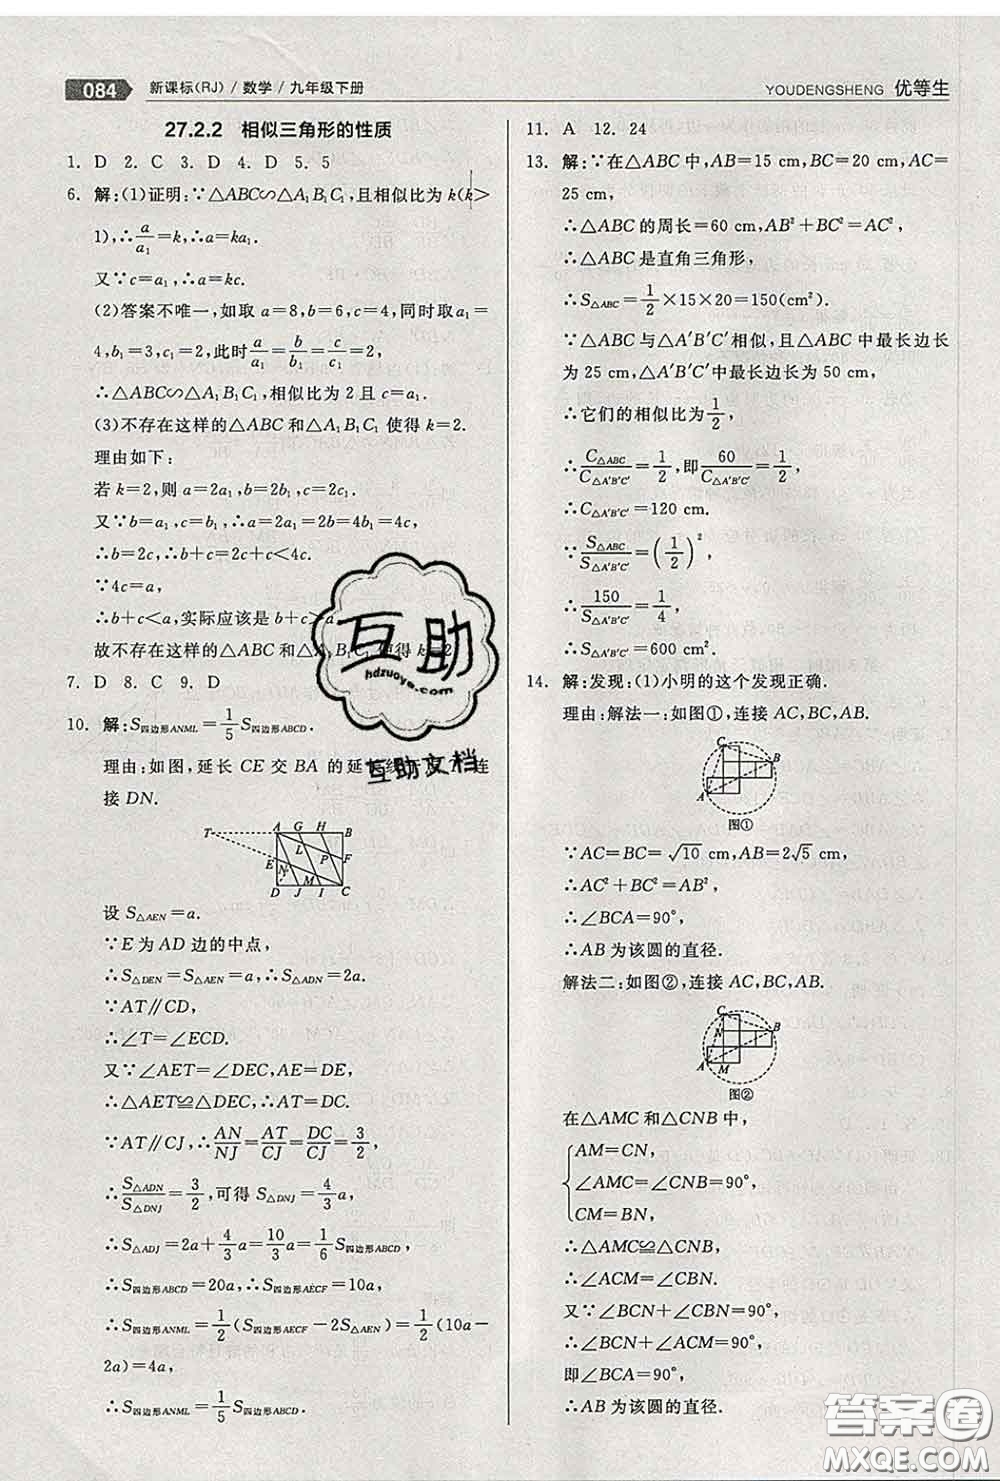 084 新课标(RJ) / 数学 / 九年级下册
YOUDENGSHENG 优等生
27.2.2 相似三角形的性质
1. D 2. C 3. D 4. D 5. 5
6. 解:(1)证明:∵△ABC∽△A₁B₁C₁,且相似比为 k(k>
1),∴a/a₁=k,∴a=ka₁.
又∵c=a₁,∴a=kc.
(2)答案不唯一,如取 a=8,b=6,c=4,同时取a₁=
4,b₁=3,c₁=2,此时a/a₁=b/b₁=c/c₁=2,
∴△ABC∽△A₁B₁C₁,相似比为 2 且 c=a₁.
(3)不存在这样的△ABC 和△A₁B₁C₁ 使得 k=2.
理由如下:
若 k=2,则 a=2a₁,b=2b₁,c=2c₁.
又∵b=a₁,c=b₁,∴a=2a₁=2b=4b₁=4c,
∴b=2c,∴b+c=2c+c<4c.
∵4c=a,
∴b+c<a,实际应该是 b+c>a
故不存在这样的△ABC 和△A₁B₁C₁ 使得 k=2.
7. D 8. C 9. D
10. 解:S四边形ANML=1/5 S四边形ABCD.
理由:如图,延长 CE 交 BA 的延长线于点 T,连
接 DN.
T A G H B
L
E N P F
M
D J I C
设 S△AEN=a.
∵E 为 AD 边的中点,
∴S△DEN=S△AEN=a,∴S△ADN=2a.
∵AT∥CD,
∴∠T=∠ECD.
又∵∠AET=∠DEC,AE=DE,
∴△AET≌△DEC,∴AT=DC.
∵AT∥CJ,∴AN/NJ=AT/CJ=DC/CJ=3/2,
∴S△ADN/S△DNJ=3/2,可得 S△DNJ=4/3 a,
∴S△ADJ=2a+4/3 a=10/3 a=1/6 S四边形ABCD,
∴S四边形ABCD=20a,∴S四边形AECF=10a,
∴S四边形ANML=1/2(S四边形AECF-2S△AEN)=1/2(10a-
2a)=4a,
∴S四边形ANML=1/5 S四边形ABCD.
11. A 12. 24
13. 解:∵在△ABC 中,AB=15 cm,BC=20 cm,AC=
25 cm,
∴△ABC 的周长=60 cm,AB²+BC²=AC²,
∴△ABC 是直角三角形,
∴S△ABC=1/2×15×20=150(cm²).
∵△ABC 与△A′B′C′相似,且△ABC 中最长边长
为 25 cm,△A′B′C′中最长边长为 50 cm,
∴它们的相似比为1/2,
∴C△ABC/C△A′B′C′=1/2,即60/C△A′B′C′=1/2,
∴C△A′B′C′=120 cm.
∵S△ABC/S△A′B′C′=(1/2)²,
∴150/S△A′B′C′=1/4,
∴S△A′B′C′=600 cm².
14. 解:发现:(1)小明的这个发现正确.
理由:解法一:如图①,连接 AC,BC,AB.
C B A
图①
∵AC=BC=√10 cm,AB=2√5 cm,
∴AC²+BC²=AB²,
∴∠BCA=90°,
∴AB 为该圆的直径.
解法二:如图②,连接 AC,BC,AB.
C N B A M
图②
在△AMC 和△CNB 中,
AM=CN,
∠AMC=∠CNB=90°,
CM=BN,
∴△AMC≌△CNB,
∴∠ACM=∠CBN.
又∵∠BCN+∠CBN=90°,
∴∠BCN+∠ACM=90°,
即∠BCA=90°,
∴AB 为该圆的直径.
互助
hdzuoye.com
互助文档
答案圈
MXQE.COM